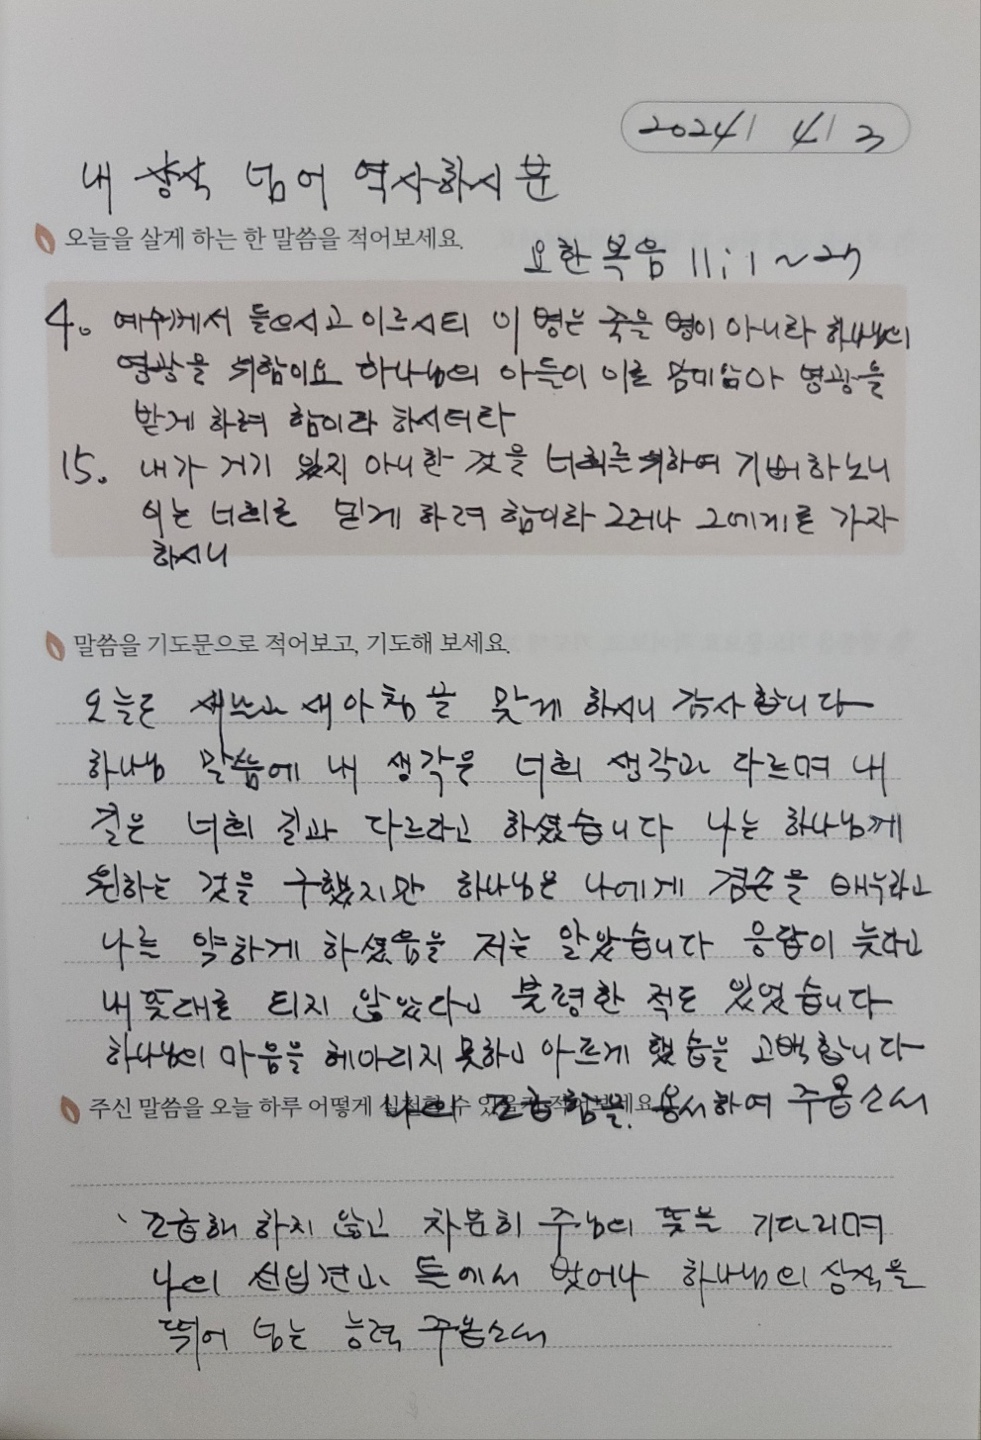 2024/ 4/ 3
내 상식 넘어 역사하시는 분
오늘을 살게 하는 한 말씀을 적어보세요.
요한복음 11;1~27
4. 예수께서 들으시고 이르시되 이 병은 죽을 병이 아니라 하나님의
영광을 위함이요 하나님의 아들이 이로 말미암아 영광을
받게 하려 함이라 하시더라
15. 내가 거기 있지 아니한 것을 너희를 위하여 기뻐하노니
이는 너희로 믿게 하려 함이라 그러나 그에게로 가자
하시니
말씀을 기도문으로 적어보고, 기도해 보세요.
오늘도 새 새아침을 맞게 하시니 감사합니다
하나님 말씀에 내 생각은 너희 생각과 다르며 내
길은 너희 길과 다르라고 하셨습니다 나는 하나님께
원하는 것을 구했지만 하나님은 나에게 겸손을 배우라고
나를 약하게 하셨음을 저는 알았습니다 응답이 늦다고
내 뜻대로 되지 않았다고 불평한 적도 있었습니다
하나님의 마음을 헤아리지 못하고 아프게 했음을 고백합니다
주신 말씀을 오늘 하루 어떻게 실천할 수 있을지 적어보세요.
나의 조급함을 용서하여 주옵소서
조급해 하지 않고 차분히 주님의 뜻을 기다리며
나의 선입견과 틀에서 벗어나 하나님의 상식을
뛰어 넘는 능력 주옵소서